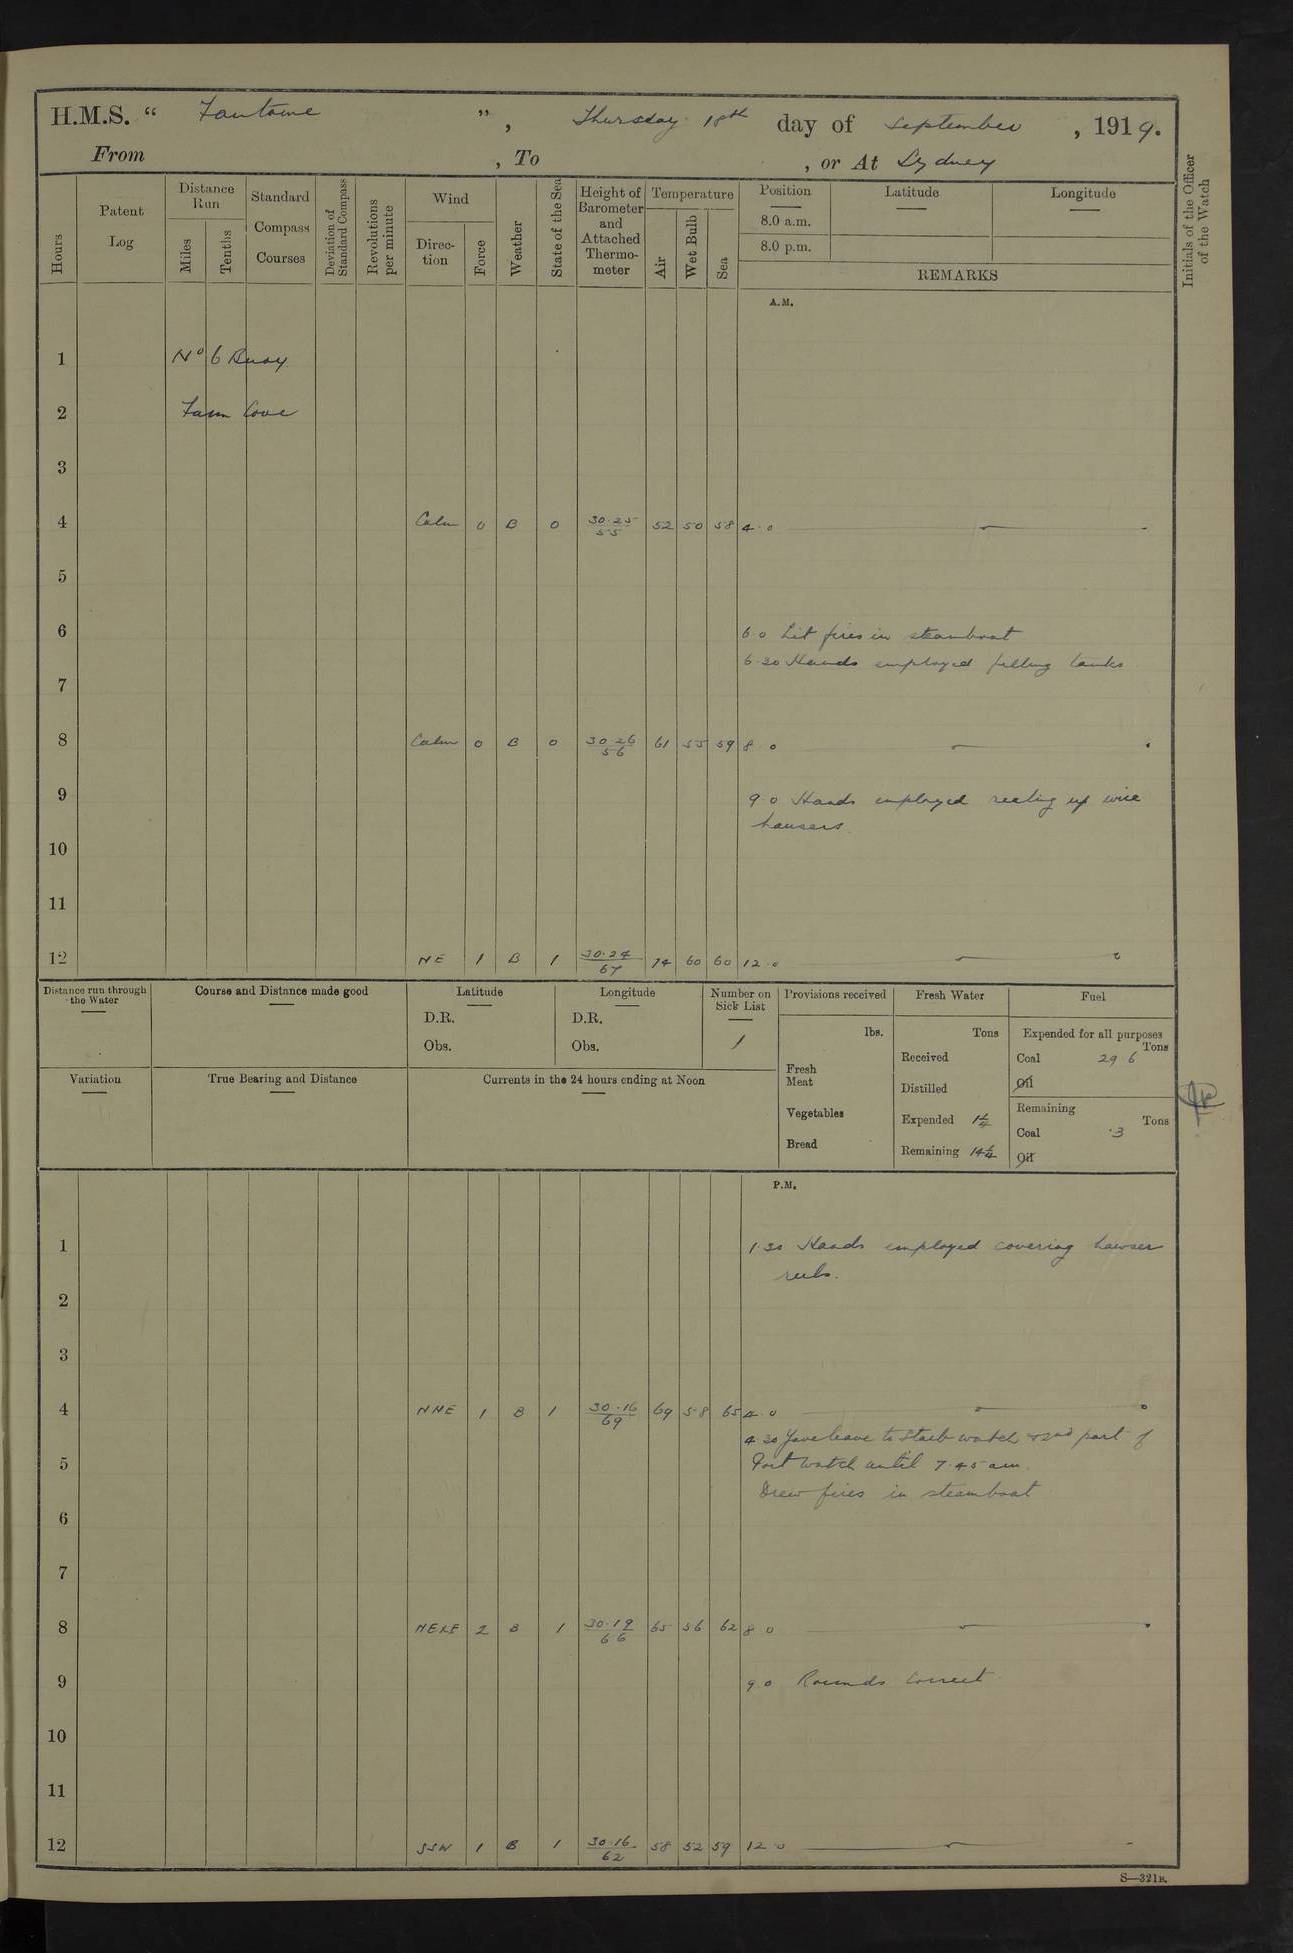 H.M.S. “ Fantome ” , Thursday 18th day of September , 1919.
From , To , or At Sydney
Initials of the Officer of the Watch
Hours
Patent Log
Distance Run
Miles
Tenths
Standard Compass Courses
Deviation of Standard Compass
Revolutions per minute
Wind
Direc-tion
Force
Weather
State of the Sea
Height of Barometer and Attached Thermo-meter
Temperature
Air
Wet Bulb
Sea
Position
8.0 a.m.
8.0 p.m.
Latitude
Longitude
REMARKS
A.M.
1 No 6 Buoy
2 Farm Cove
3
4 Calm 0 B 0 30.25 55 52 50 58 4.0
5
6 6.0 Lit fires in steamboat
6.30 Hands employed filling tanks
7
8 Calm 0 B 0 30.26 56 61 55 59 8.0
9 9.0 Hands employed reeling up wire
hawsers.
10
11
12 NE 1 B 1 30.24 67 74 60 60 12.0
Distance run through the Water
Course and Distance made good
Latitude
D.R.
Obs.
Longitude
D.R.
Obs.
Number on Sick List
1
Provisions received
lbs.
Fresh Meat
Vegetables
Bread
Fresh Water
Tons
Received
Distilled
Expended 1¼
Remaining 14¼
Fuel
Expended for all purposes
Tons
Coal 29 6
Oil
Remaining
Tons
Coal .3
Oil
Variation
True Bearing and Distance
Currents in the 24 hours ending at Noon
P.M.
1 1.30 Hands employed covering hawser
reels.
2
3
4 NNE 1 B 1 30.16 69 69 58 65 4.0
4.30 Gave leave to Starb watch & 2nd part of
5 Port watch until 7.45 am.
Drew fires in steamboat
6
7
8 NExE 2 B 1 30.19 66 65 56 62 8.0
9 9.0 Rounds Correct
10
11
12 SSW 1 B 1 30.16 62 58 52 59 12.0
S—321B.